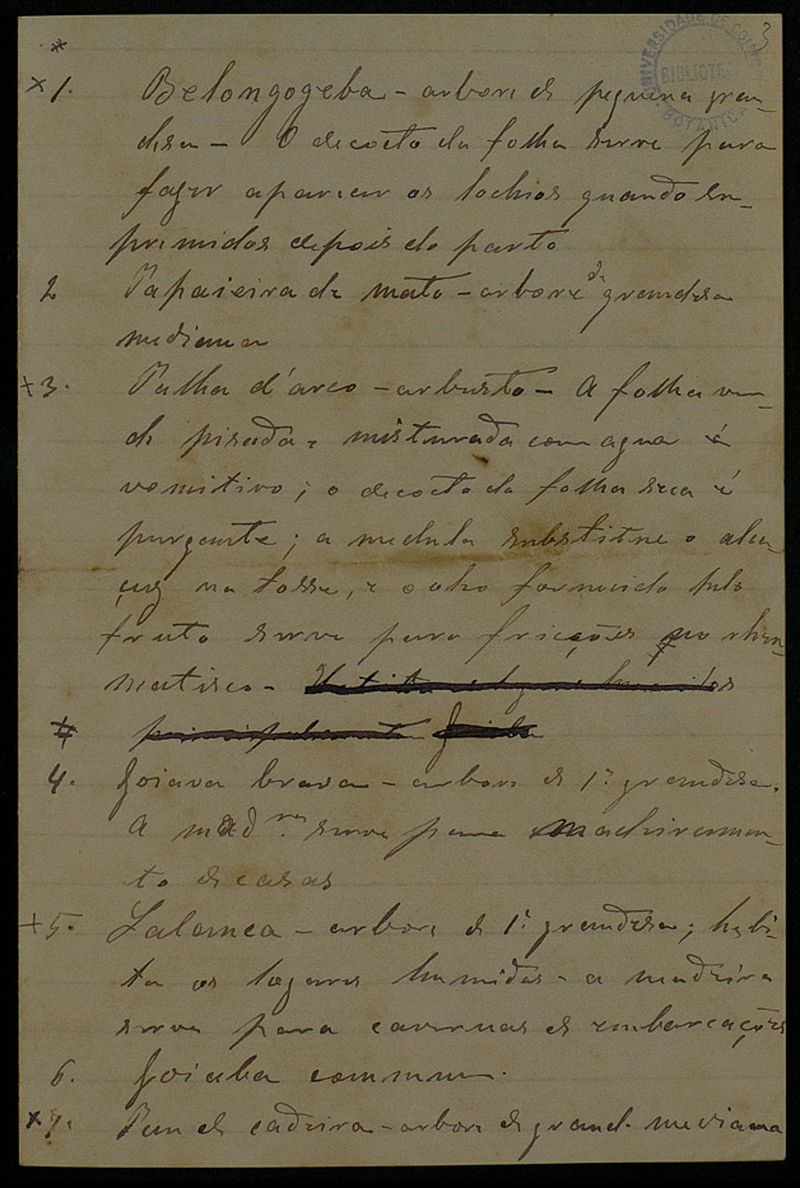 3
UNIVERSIDADE DE COIMBRA
BIBLIOTECA
BOTANICA
*
×1. Belongogeba – arbore de pequena gran-
desa – O decocto da folha serve para
fazer aparecer os lochios quando su-
primidos depois do parto
2 Papaieira de mato – arbore de grandesa
mediana
+3. Palha d'arco – arbusto – A folha ver-
de pisada e misturada com agua é
vomitivo; o decocto da folha seca é
purgante; a medula substitue o alca-
çuz na tosse, e o oleo fornecido pelo
fruto serve para fricções no rheu-
matismo –
4. Goiava brava – arbore de 1ª grandesa.
A madrª serve para madeiramen-
to de casas
+5. Zalamea – arbore de 1ª grandesa; habi-
ta os logares humidos – a madeira
serve para cavernas de embarcações
6. Goiaba commum.
×7. Pau de cadeira – arbore de grand. mediana